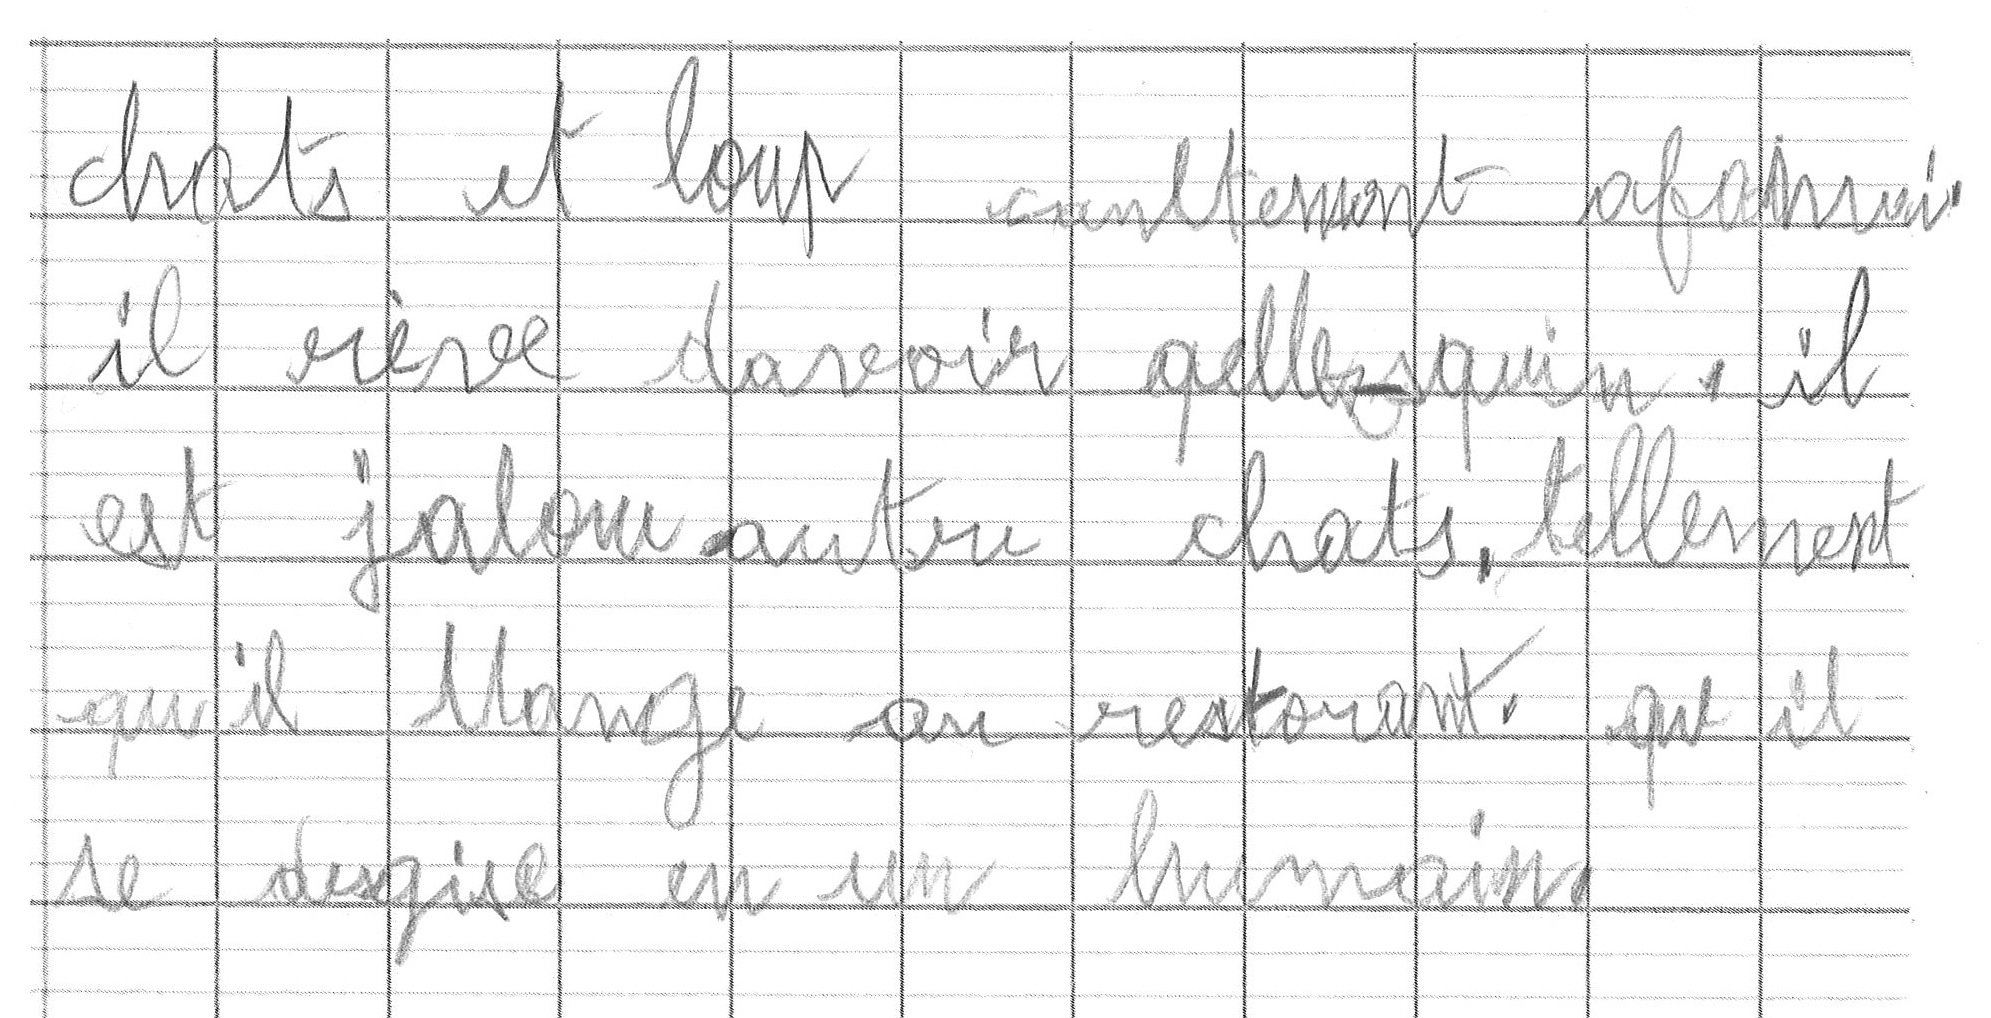 chats et loup afamei.
il rève davoir qellesquin. il
est jalou autre chats, tellement
qu'il Mange au restorant. qu il
se desgise en un humain.